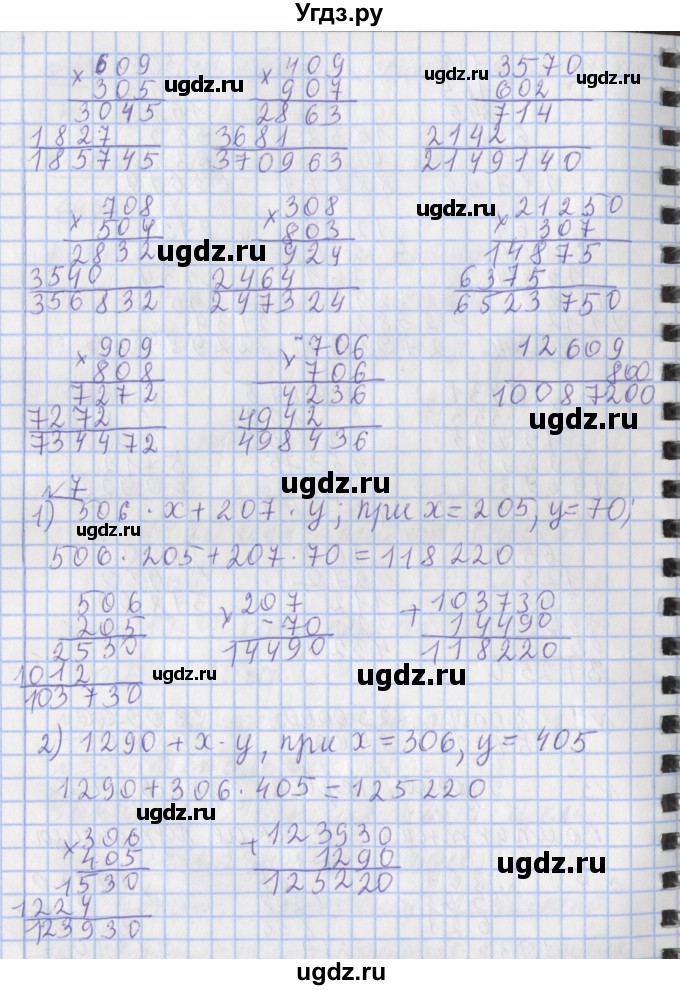 Угдз.ру
× 609 × 409 3570
ugdz.ru
305 907 602
ugdz.ru ugdz.ru
3045 2863 714
1827 3681 2142
185745 370963 2149140
× 708 × 308 × 21250
ugdz.ru
504 803 307
2832 924 14875
ugdz.ru
3540 2464 6375
356832 247324 6523750
× 909 × 706 12609
808 706 800
7272 4236 10087200
7272 4942
734472 498436
ugdz.ru
№7
1) 506 · x + 207 · y; при x = 205, y = 70;
ugdz.ru
506 · 205 + 207 · 70 = 118220
506 × 207 + 103730
205 70 14490
2530 14490 118220
1012
ugdz.ru ugdz.ru
103730
2) 1290 + x · y, при x = 306, y = 405
1290 + 306 · 405 = 125220
ugdz.ru
× 306 + 123930
405 1290
1530 125220
ugdz.ru
1224
123930
ugdz.ru
ugdz.ru